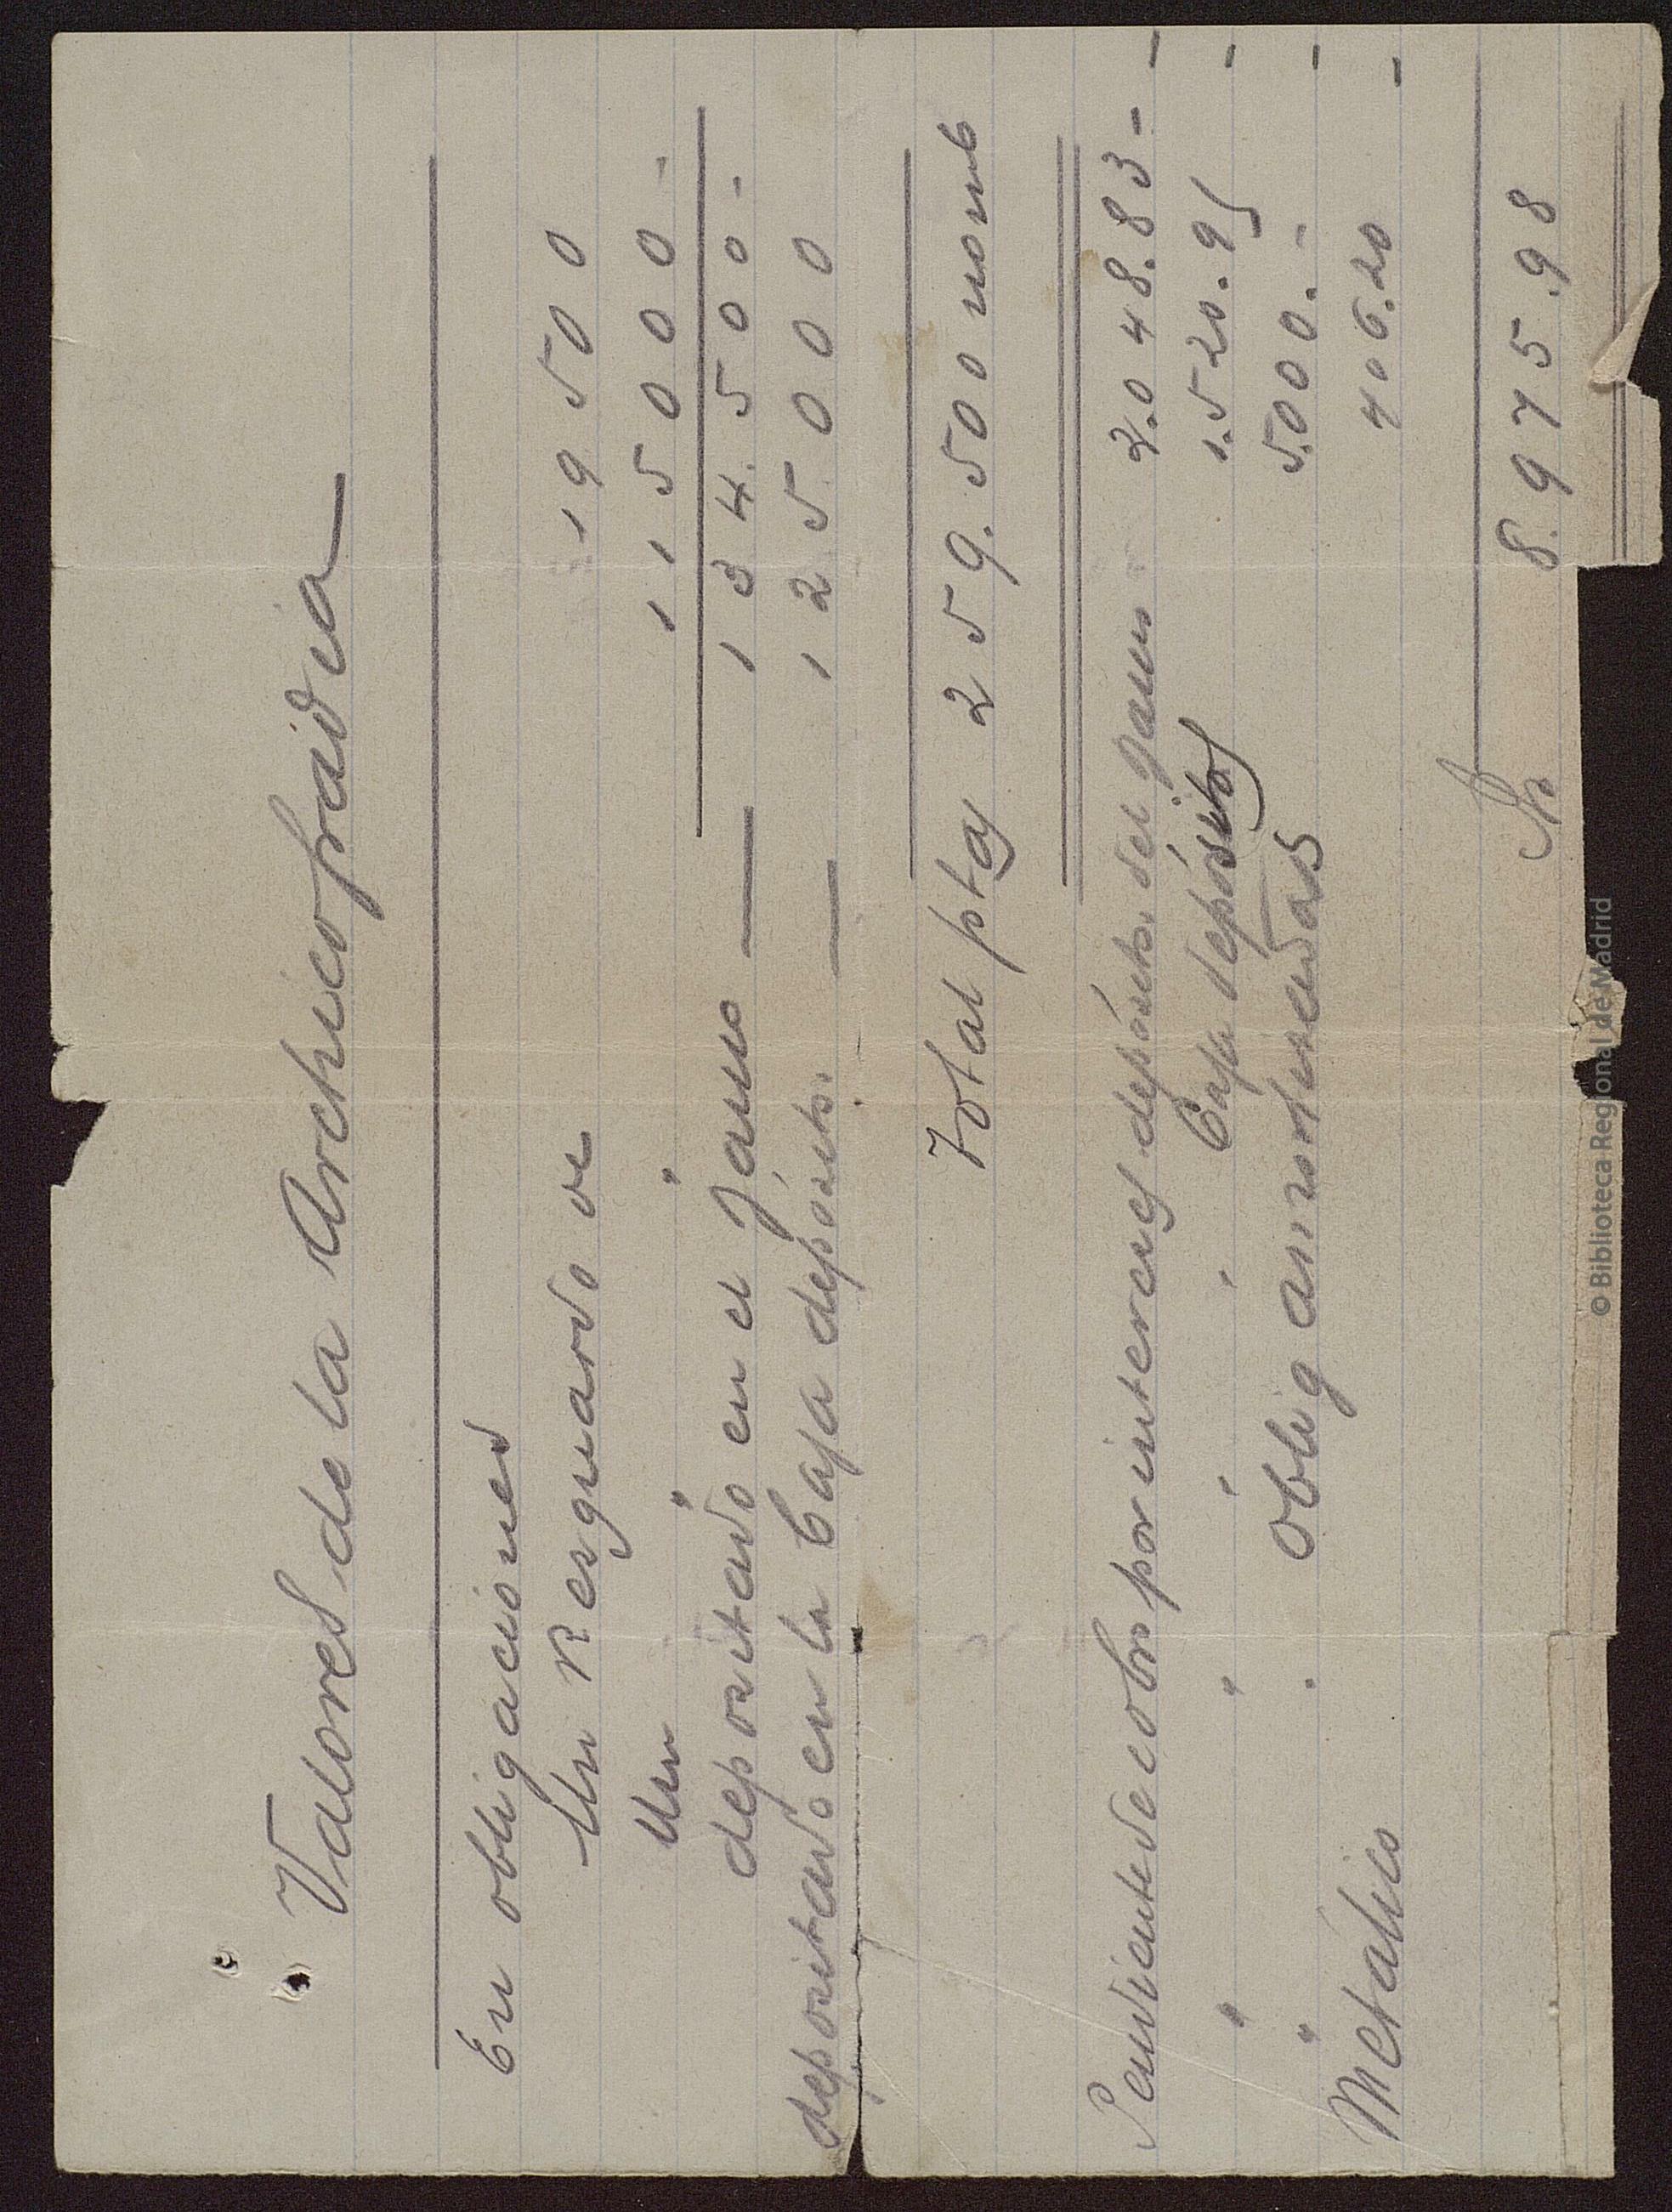 Valores de la Archicofradia
En obligaciones
Un Resguardo de 19500
Un " " 115000 -
depositado en el Banco — 134.500 -
depositado en la Caja depósito. — 125000
Total ptas 259.500 nomb
Pendiente de cobro por intereses depósito del Banco 2.048.83 - -
" " " " Caja depósitos 1.520.95 -
" " Oblig amortizadas 5.000. - -
Metálico 406.20 -
8.975.98
© Biblioteca Regional de Madrid